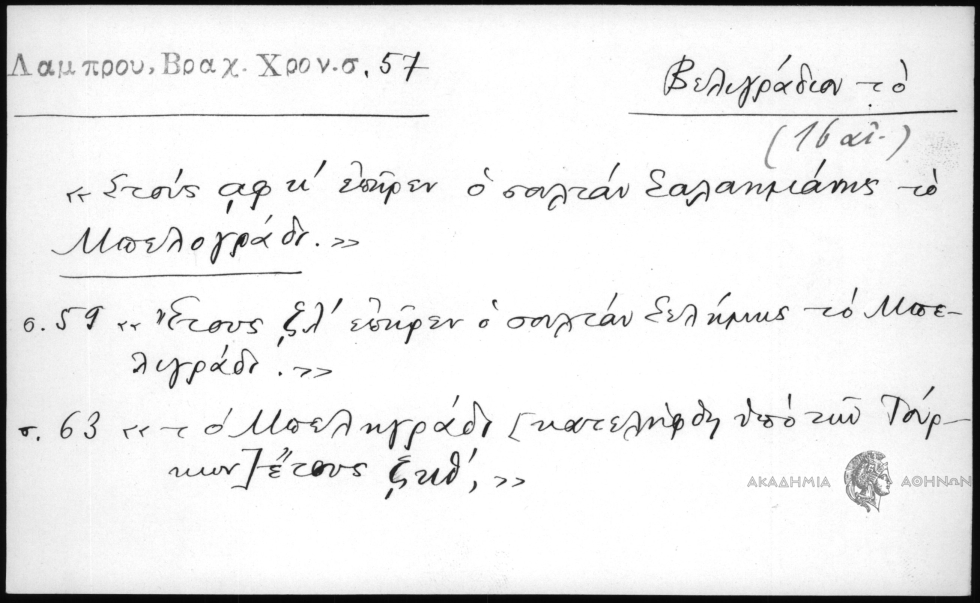 Λαμπρου, Βραχ. Χρον. σ. 57
Βελιγράδιον τὸ
(16 αἰ.)
«Στοὺς αφκ' ἐπῆρεν ὁ σουλτάν Σαλαημιάνης τὸ
Μπελογράδι.»
σ. 59 «Ἔτους ζλ' ἐπῆρεν ὁ σουλτάν Σελήμης τό Μπε-
λιγράδι.»
σ. 63 «τό Μπεληγράδι [κατελήφθη ὑπό τῶν Τούρ-
κων] ἔτους ζκθ',»
ΑΚΑΔΗΜΙΑ ΑΘΗΝΩΝ